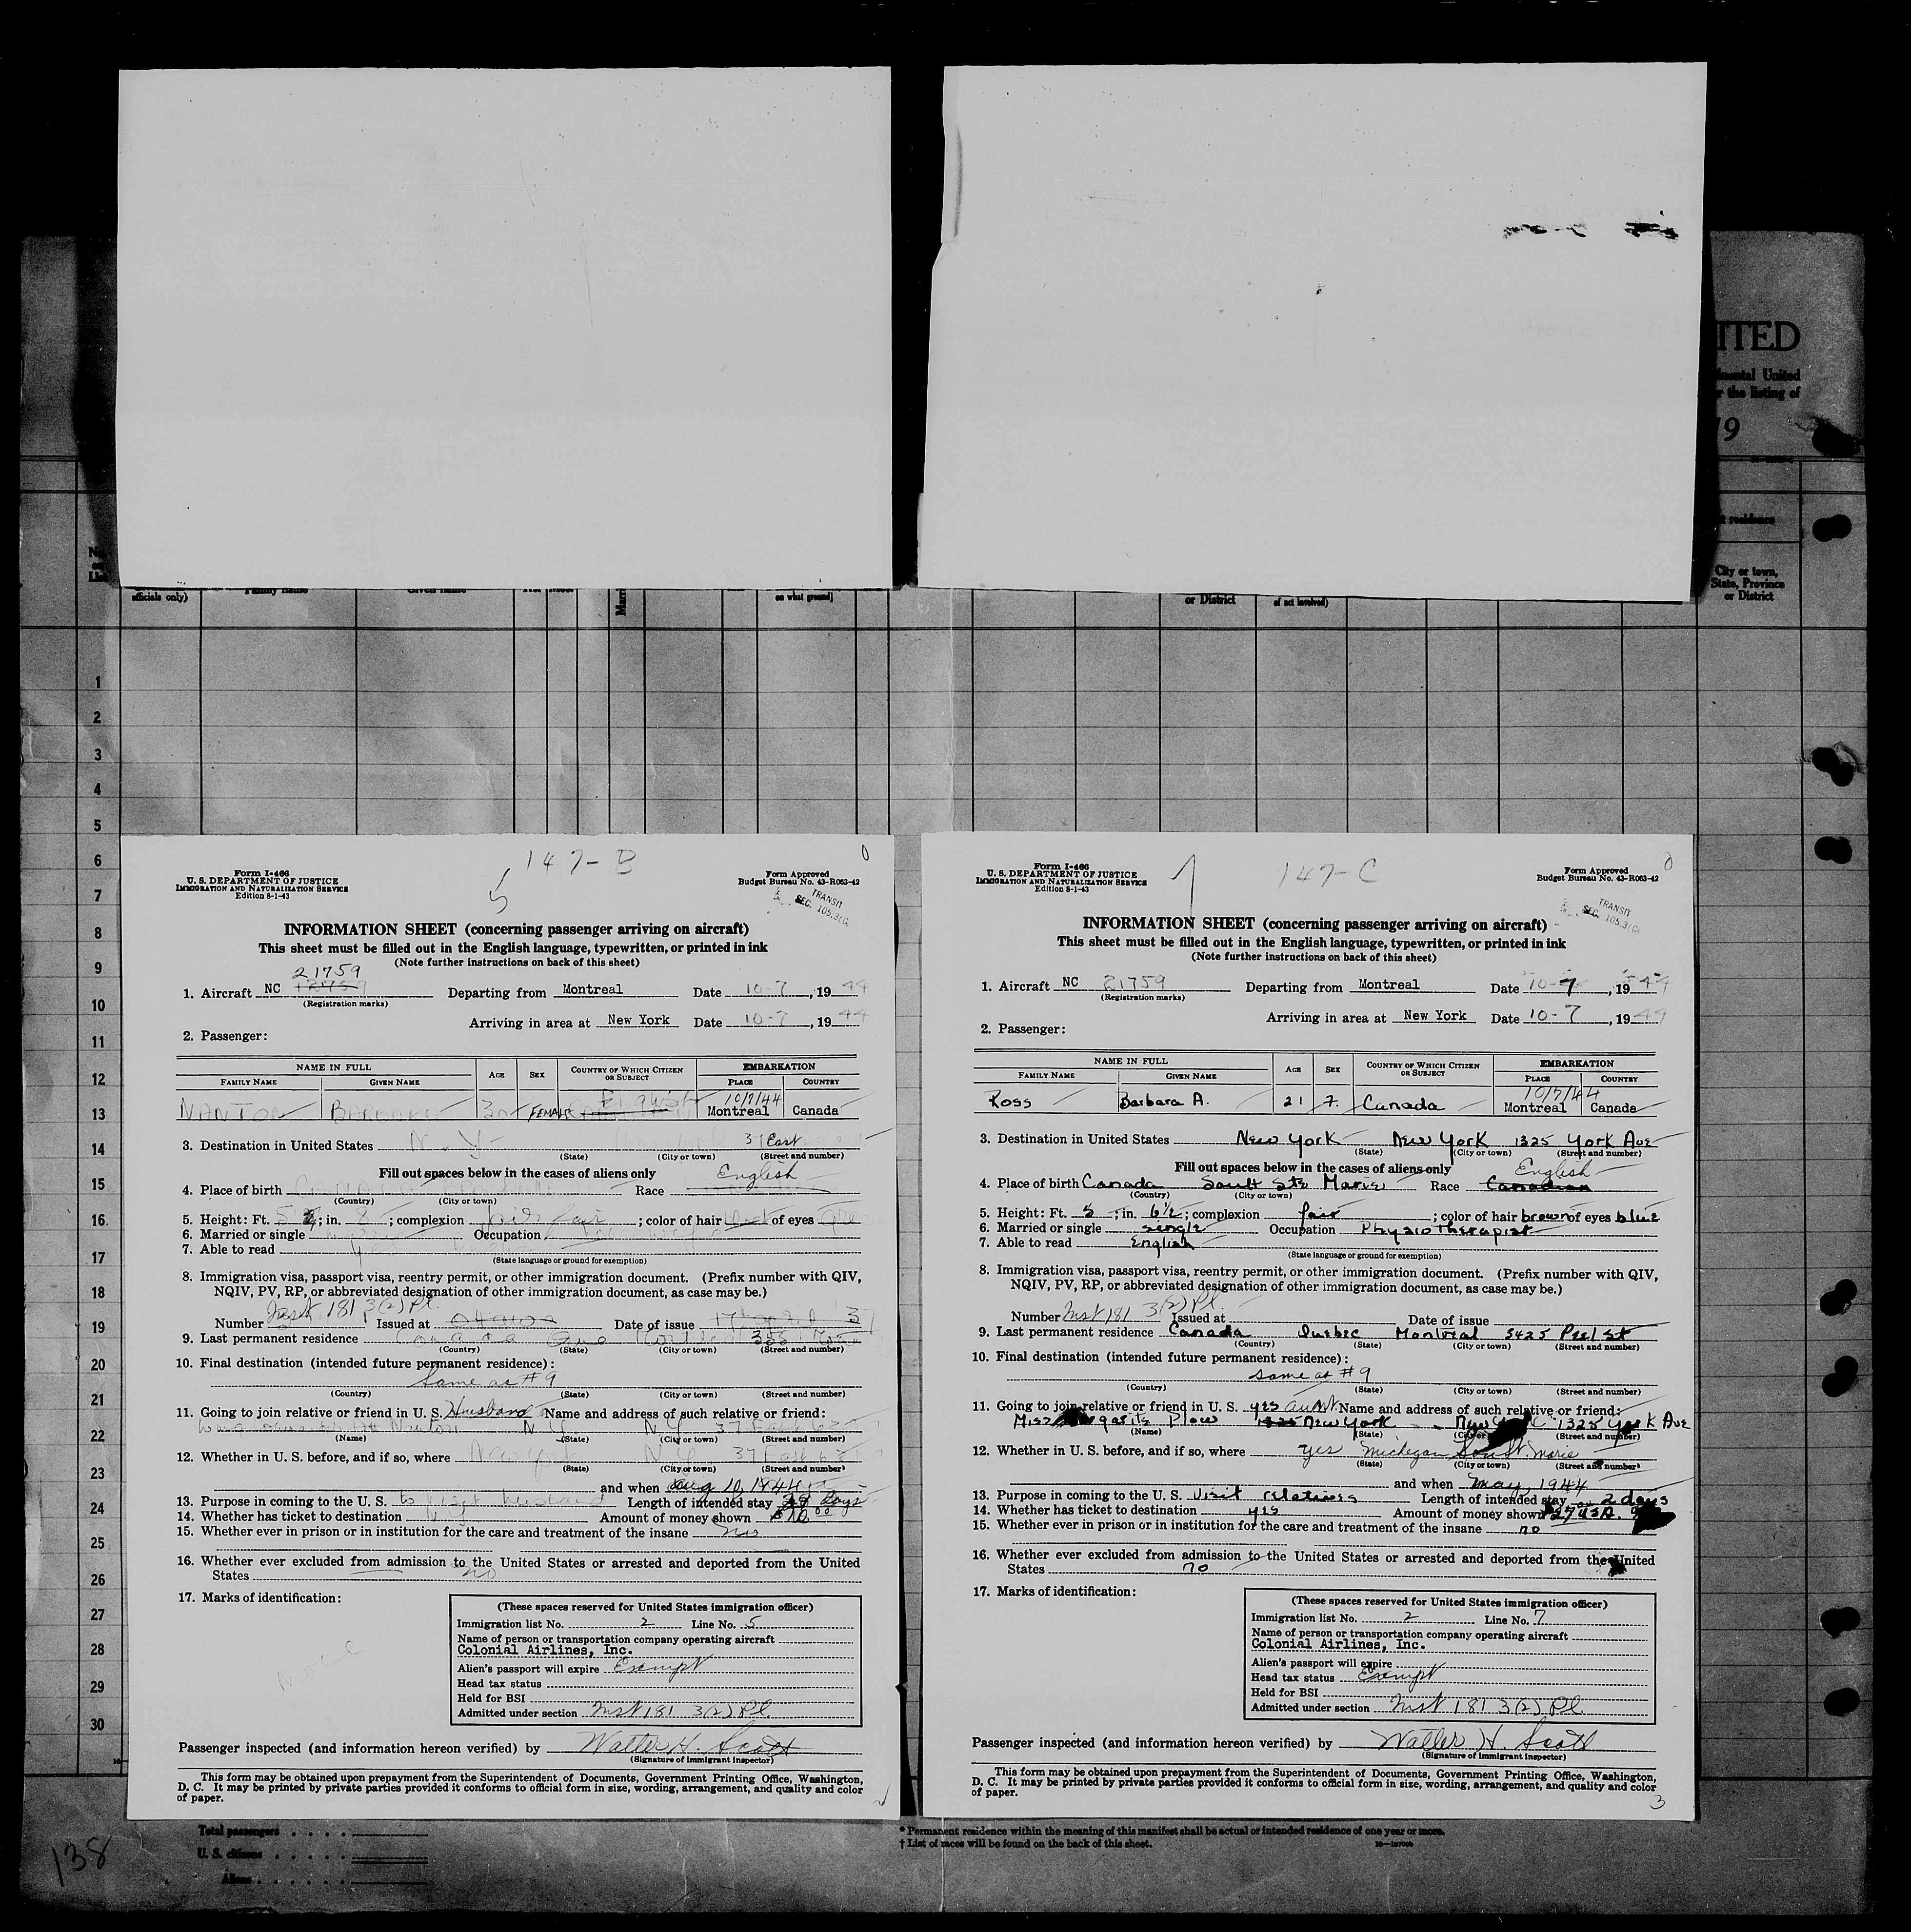 ITED
mental United
r the listing of
19
t residence
City or town,
State, Province
or District
officials only)
Family name
Given name
on what ground)
or District
of act involved)
1
2
3
4
5
6
7
8
9
10
11
12
13
14
15
16
17
18
19
20
21
22
23
24
25
26
27
28
29
30
147-B
Form I-466
U. S. DEPARTMENT OF JUSTICE
IMMIGRATION AND NATURALIZATION SERVICE
Edition 8-1-43
Form Approved
Budget Bureau No. 43-R063-42
TRANSIT
SEC. 105.3(G)
INFORMATION SHEET (concerning passenger arriving on aircraft)
This sheet must be filled out in the English language, typewritten, or printed in ink
(Note further instructions on back of this sheet)
21759
1. Aircraft NC Departing from Montreal Date 10-7, 1944
(Registration marks)
Arriving in area at New York Date 10-7, 1944
2. Passenger:
NAME IN FULL AGE SEX COUNTRY OF WHICH CITIZEN OR SUBJECT EMBARKATION
FAMILY NAME GIVEN NAME PLACE COUNTRY
10/7/44
NANTON 30 FEMALE English Montreal Canada
3. Destination in United States N.Y. 37 East
(State) (City or town) (Street and number)
Fill out spaces below in the cases of aliens only
4. Place of birth Race English
(Country) (City or town)
5. Height: Ft. 5; in. 8; complexion fair; color of hair of eyes
6. Married or single Occupation
7. Able to read
(State language or ground for exemption)
8. Immigration visa, passport visa, reentry permit, or other immigration document. (Prefix number with QIV,
NQIV, PV, RP, or abbreviated designation of other immigration document, as case may be.)
Number Inst 181 3(2) Pl. Issued at Ottawa Date of issue
9. Last permanent residence Canada Que Montreal
(Country) (State) (City or town) (Street and number)
10. Final destination (intended future permanent residence):
Same as #9
(Country) (State) (City or town) (Street and number)
11. Going to join relative or friend in U. S. Husband Name and address of such relative or friend:
Nanton N.Y. N.Y. 37 East
(Name) (State) (City or town) (Street and number)
12. Whether in U. S. before, and if so, where New York N.Y. 37 East
(State) (City or town) (Street and number)
and when Aug 10, 1944
13. Purpose in coming to the U. S. to visit husband Length of intended stay days
14. Whether has ticket to destination Amount of money shown
15. Whether ever in prison or in institution for the care and treatment of the insane no
16. Whether ever excluded from admission to the United States or arrested and deported from the United
States no
17. Marks of identification:
none
(These spaces reserved for United States immigration officer)
Immigration list No. 2 Line No. 5
Name of person or transportation company operating aircraft
Colonial Airlines, Inc.
Alien's passport will expire Exempt
Head tax status
Held for BSI
Admitted under section Inst 181 3(2) Pl
Passenger inspected (and information hereon verified) by Walter H. Scott
(Signature of immigrant inspector)
This form may be obtained upon prepayment from the Superintendent of Documents, Government Printing Office, Washington,
D. C. It may be printed by private parties provided it conforms to official form in size, wording, arrangement, and quality and color
of paper.
147-C
Form I-466
U. S. DEPARTMENT OF JUSTICE
IMMIGRATION AND NATURALIZATION SERVICE
Edition 8-1-43
Form Approved
Budget Bureau No. 43-R063-42
TRANSIT
SEC. 105.3(G)
INFORMATION SHEET (concerning passenger arriving on aircraft)
This sheet must be filled out in the English language, typewritten, or printed in ink
(Note further instructions on back of this sheet)
1. Aircraft NC 21759 Departing from Montreal Date 10-7, 1944
(Registration marks)
Arriving in area at New York Date 10-7, 1944
2. Passenger:
NAME IN FULL AGE SEX COUNTRY OF WHICH CITIZEN OR SUBJECT EMBARKATION
FAMILY NAME GIVEN NAME PLACE COUNTRY
10/7/44
Ross Barbara A. 21 F. Canada Montreal Canada
3. Destination in United States New York New York 1325 York Ave
(State) (City or town) (Street and number)
Fill out spaces below in the cases of aliens only
English
4. Place of birth Canada Sault Ste Marie Race Canadian
(Country) (City or town)
5. Height: Ft. 5; in. 6½; complexion fair; color of hair brown of eyes blue
6. Married or single single Occupation Physiotherapist
7. Able to read English
(State language or ground for exemption)
8. Immigration visa, passport visa, reentry permit, or other immigration document. (Prefix number with QIV,
NQIV, PV, RP, or abbreviated designation of other immigration document, as case may be.)
Number Inst 181 3(2) Pl. Issued at Date of issue
9. Last permanent residence Canada Quebec Montreal 3425 Peel St
(Country) (State) (City or town) (Street and number)
10. Final destination (intended future permanent residence):
same as #9
(Country) (State) (City or town) (Street and number)
11. Going to join relative or friend in U. S. yes aunt Name and address of such relative or friend:
Miss Plow 1325 New York New York 1325 York Ave
(Name) (State) (City or town) (Street and number)
12. Whether in U. S. before, and if so, where yes Michegan Sault St. Marie
(State) (City or town) (Street and number)
and when May, 1944
13. Purpose in coming to the U. S. Visit relatives Length of intended stay 2 days
14. Whether has ticket to destination yes Amount of money shown
15. Whether ever in prison or in institution for the care and treatment of the insane no
16. Whether ever excluded from admission to the United States or arrested and deported from the United
States no
17. Marks of identification:
(These spaces reserved for United States immigration officer)
Immigration list No. 2 Line No. 7
Name of person or transportation company operating aircraft
Colonial Airlines, Inc.
Alien's passport will expire
Head tax status Exempt
Held for BSI
Admitted under section Inst 181 3(2) Pl.
Passenger inspected (and information hereon verified) by Walter H. Scott
(Signature of immigrant inspector)
This form may be obtained upon prepayment from the Superintendent of Documents, Government Printing Office, Washington,
D. C. It may be printed by private parties provided it conforms to official form in size, wording, arrangement, and quality and color
of paper.
3
Total passengers
U. S. citizens
Aliens
138
* Permanent residence within the meaning of this manifest shall be actual or intended residence of one year or more.
† List of races will be found on the back of this sheet.